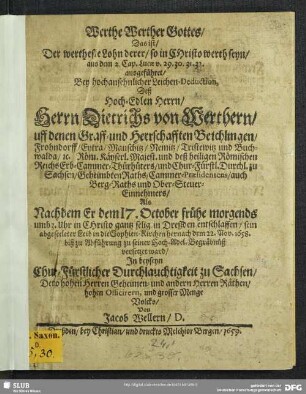 Werthe Werther Gottes/
Das ist/
Der wertheste Lohn derer/ so in Christo werth seyn/
aus dem 2. Cap. Lucæ v. 29. 30. 31. 32.
ausgeführet/
Bey hochansehnlicher Leichen-Deduction,
Deß
Hoch-Edlen Herrn/
Herrn Dietrichs von Werthern/
uff denen Graff- und Herrschafften Beichlingen/
Frohndorf/ Eytra/ Mausitz/ Nemitz/ Tristewitz und Buch-
walda/ ꝛc. Röm. Käyserl. Majest. und deß heiligen Römischen
Reichs Erb-Cammer-Thürhüters/ und Chur-Fürstl. Durchl. zu
Sachsen/ Geheimbten Raths/ Cammer-Præsidentens/ auch
Berg-Raths und Ober-Steuer-
Einnehmers/
Als
Nachdem Er dem 17. October frühe morgends
umb 2. Uhr in Christo gantz selig in Dresden entschlaffen/ sein
abgeseelter Leib in die Sophien-Kirche hernach den 22. Nov. 1658.
biß zu Abführung zu seiner Hoch-Adel. Begräbnüß
versetzet ward/
In beyseyn
Chur-Fürstlicher Durchlauchtigkeit zu Sachsen/
Dero hohen Herren Geheimen- und andern Herren Räthen/
hohen Officirern, und grosser Menge
Volcks/
Von
Jacob Wellern/ D.
Dreßden, bey Christian/ und druckts Melchior Bergen/ 1659.
Saxon.
30.
SLUB